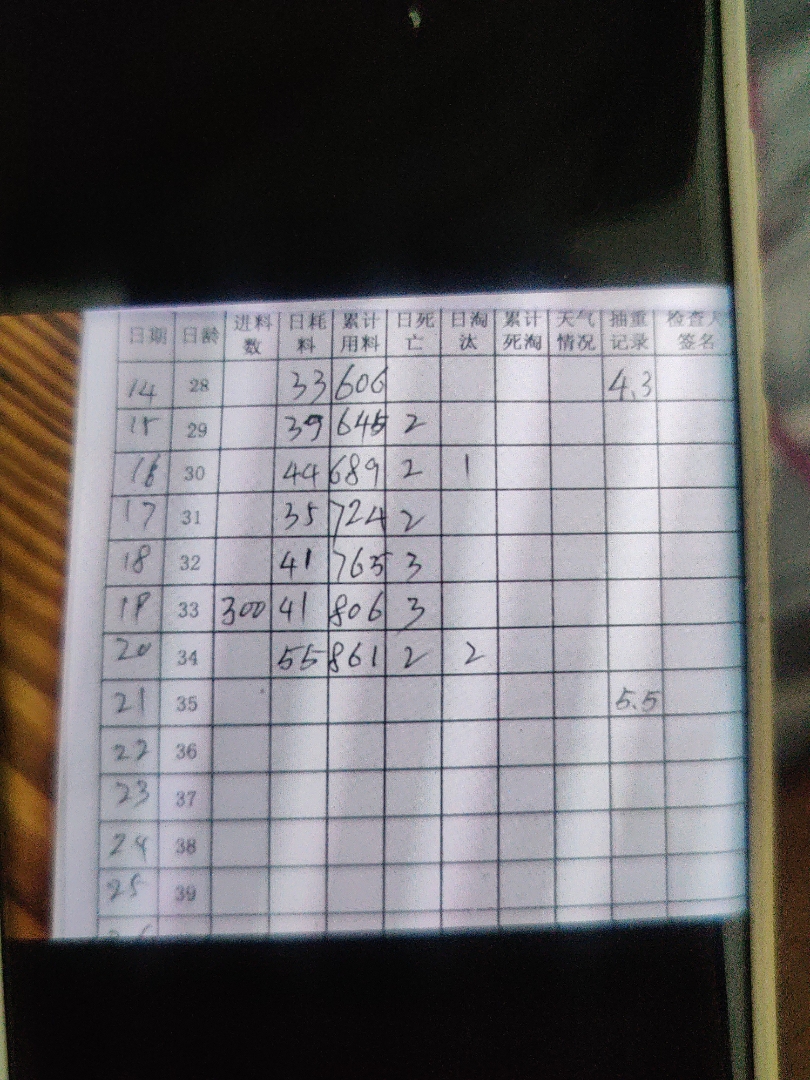 日期 日龄 进料数 日耗料 累计用料 日死亡 日淘汰 累计死淘 天气情况 抽重记录 检查人签名
14 28 33 606 4.3
15 29 39 645 2
16 30 44 689 2 1
17 31 35 724 2
18 32 41 765 3
19 33 300 41 806 3
20 34 55 861 2 2
21 35 5.5
22 36
23 37
24 38
25 39